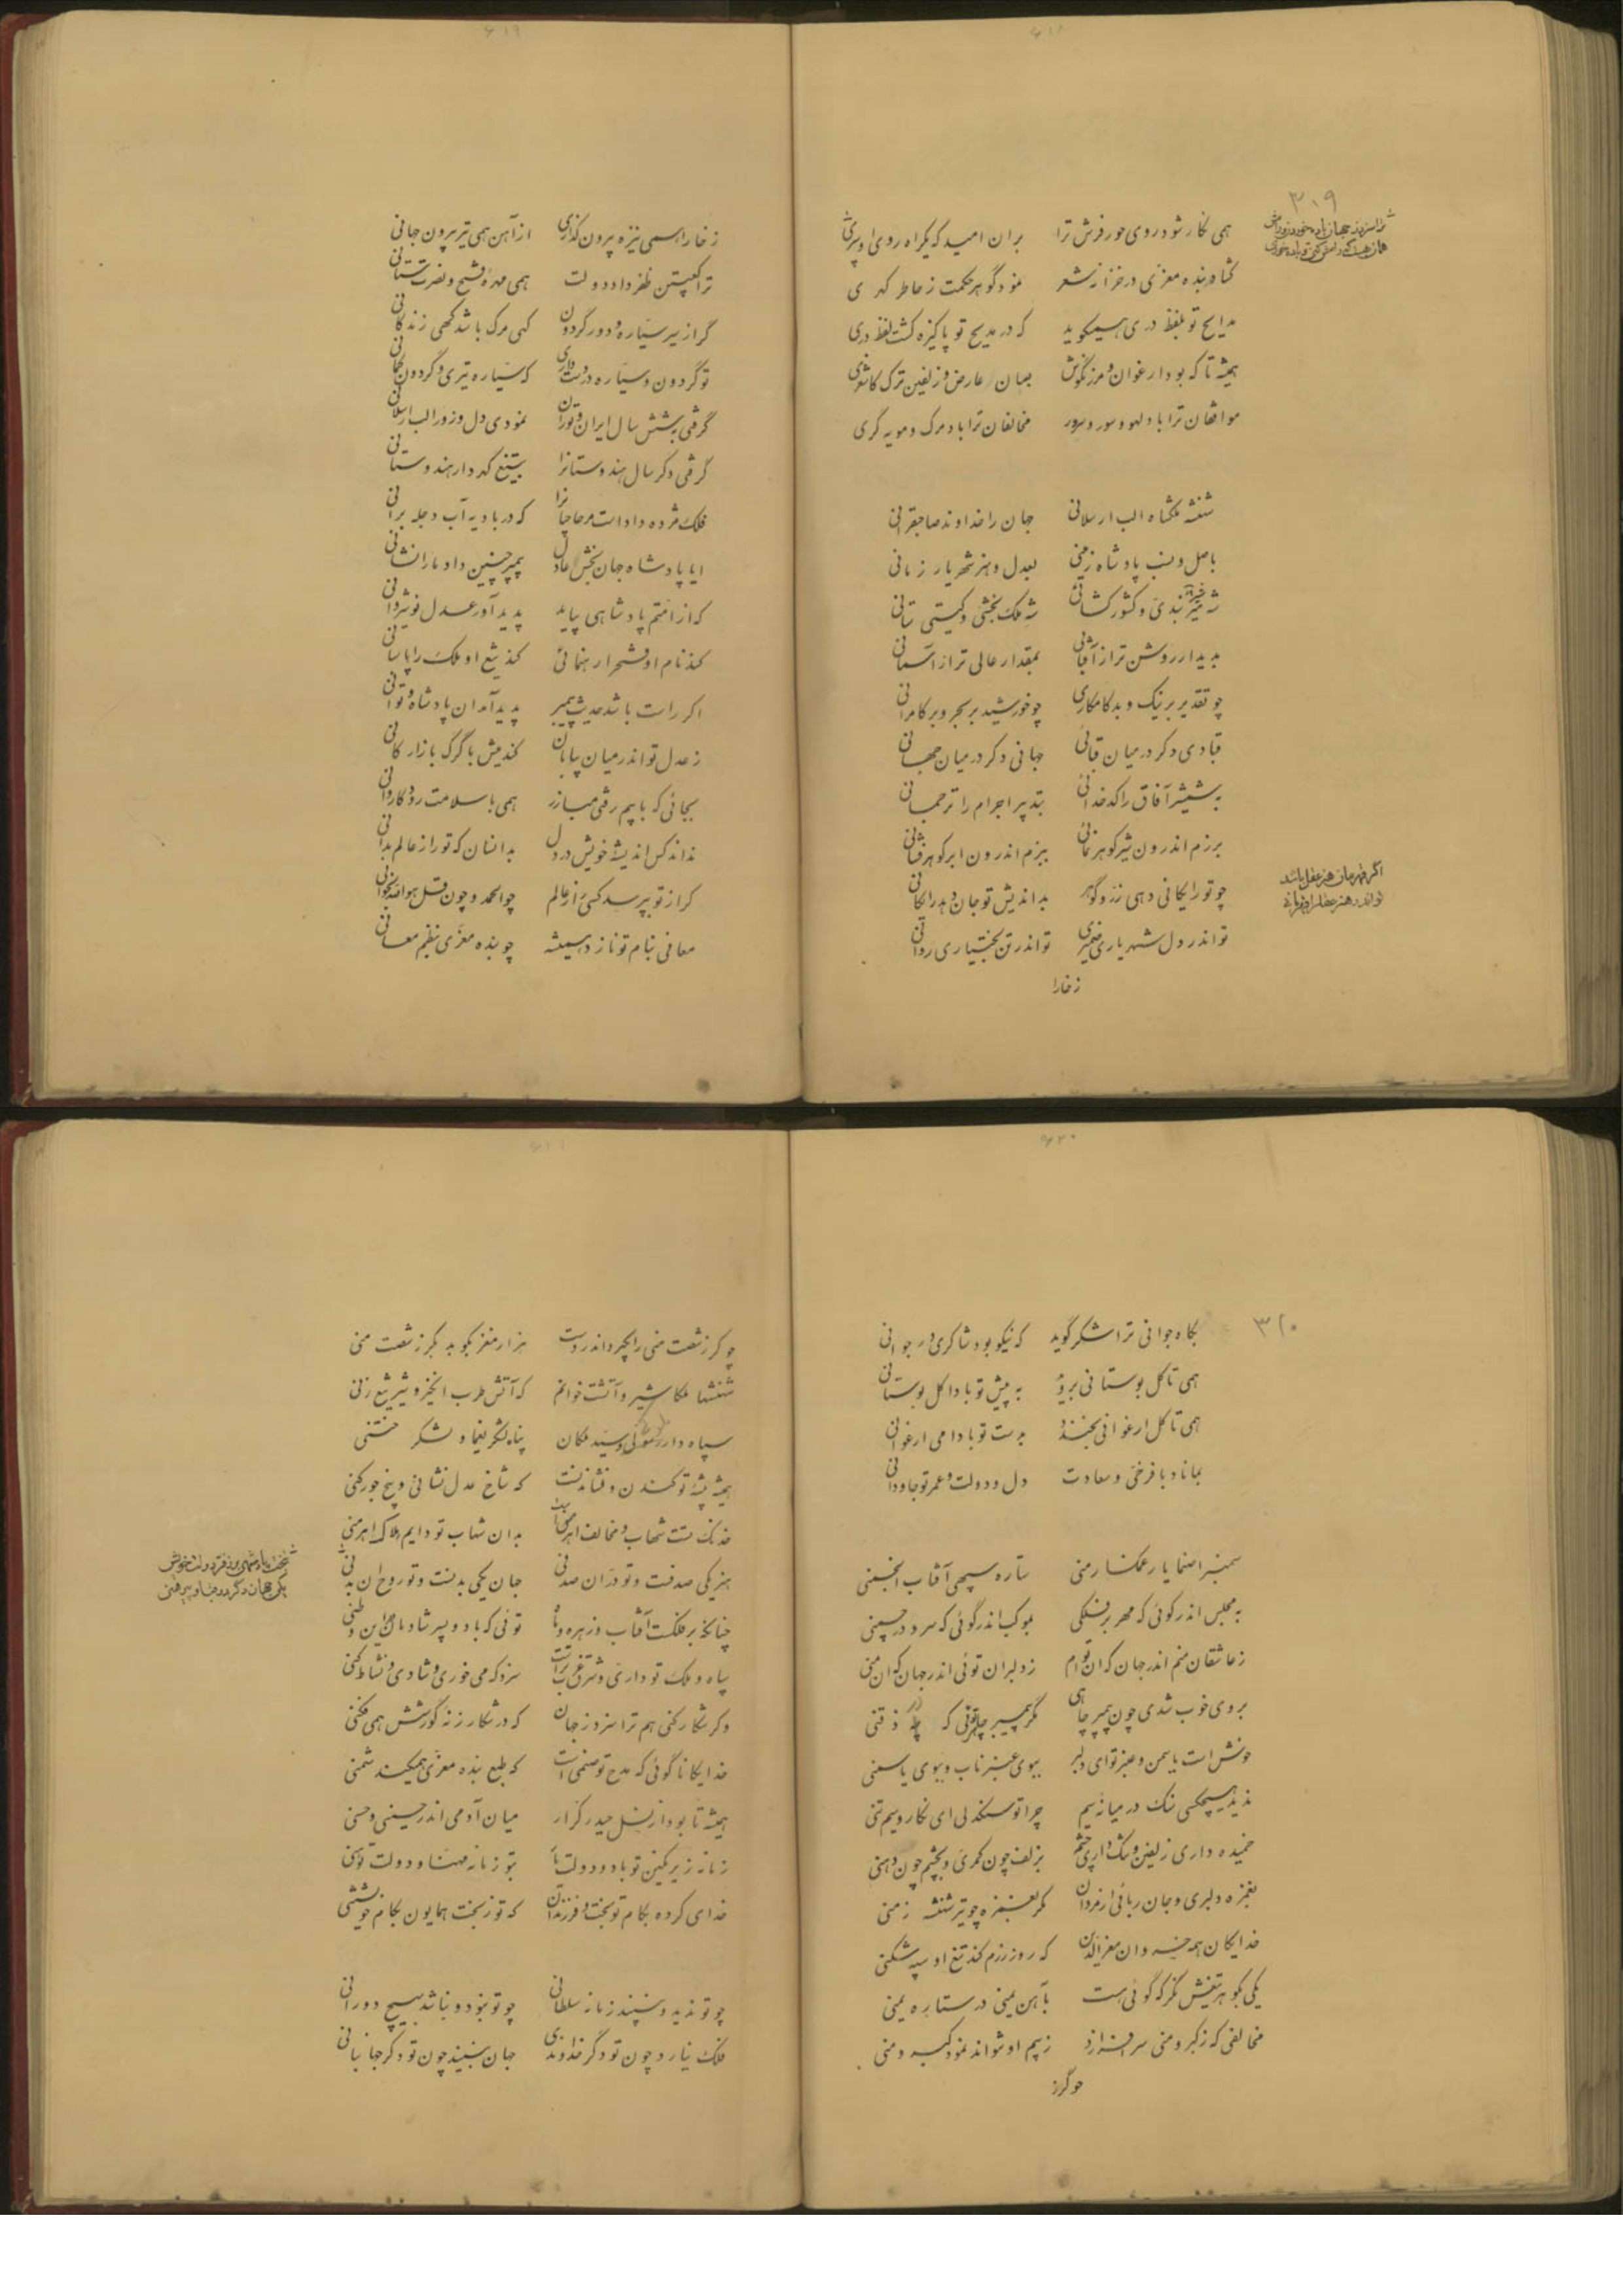 ۶۱۸
۳۱۹
همی نگار شود روی حور فرش ترا بران امید که یکراه روی او سپری
گشاد بنده معزی در خزانه شعر نمود گوهر حکمت ز خاطر گهری
مدایح تو بلفظ دری همیگوید که در مدیح تو پاکیزه گشت لفظ دری
همیشه تا که بود ارغوان و مرزنگوش بسان عارض و زلفین ترک کاشغری
موافقان ترا باد لهو و سور و سرور مخالفان ترا باد مرگ و مویه گری
شهنشه ملکشاه الب ارسلانی جهان را خداوند صاحبقرانی
باصل و نسب پادشاه زمینی بعدل و هنر شهریار زمانی
شه شیر بندی و کشور گشائی شه ملک بخشی و گیتی ستانی
بدیدار روشن تر از آفتابی بمقدار عالی تر از آسمانی
چو تقدیر بر نیک و بد کامکاری چو خورشید بر بحر و بر کامرانی
قبادی دگر در میان قبائی جهانی دگر در میان جهانی
بشمشیر آفاق را کدخدائی بتدبیر اجرام را ترجمانی
برزم اندرون شیر گوهر نمائی ببزم اندرون ابر گوهر فشانی
اگر قهرمان هنر عقل باشد
تو اندر هنر عقل را قهرمانی
چو تو رایگانی دهی زر و گوهر بداندیش تو جان دهد رایگانی
تو اندر دل شهریاری ضمیری تو اندر تن بختیاری روانی
زخارا
۶۱۹
زخارا همی نیزه بیرون گذاری از آهن همی تیر بیرون جهانی
ترا کعبتین ظفر داد دولت همی مهره فتح و نصرت ستانی
گر از سیر سیاره و دور گردون گهی مرگ باشد گهی زندگانی
تو گردون و سیاره در دست داری که سیاره تیری و گردون کمانی
گرفتی بشش سال ایران و توران نمودی دل و زور الب ارسلانی
گرفتی دگر سال هندوستانرا بتیغ گهردار هندوستانی
فلک مژده داد است مر حاجیانرا که در بادیه آب دجله برانی
ایا پادشاه جهان بخش عادل پیمبر چنین داد ما را نشانی
که از امتم پادشاهی بیاید پدید آورد عدل نوشیروانی
کند نام او فتح را رهنمائی کند تیغ او ملک را پاسبانی
اگر راست باشد حدیث پیمبر پدید آمد آن پادشاه و تو آنی
ز عدل تو اندر میان بیابان کند میش با گرگ بازارگانی
بجائی که با بیم رفتی مبارز همی با سلامت رود کاروانی
نداند کس اندیشه خویش در دل بدانسان که تو راز عالم بدانی
گر از تو بپرسد کسی راز عالم چو الحمد و چون قل هو الله بخوانی
معانی بنام تو نازد همیشه چو بنده معزی بنظم معانی
۶۲۰
۳۲۰
بگاه جوانی ترا شکر گوید که نیکو بود شاکری در جوانی
همی تا گل بوستانی بروید به پیش تو بادا گل بوستانی
همی تا گل ارغوانی بخندد بدست تو بادا می ارغوانی
بماناد با فرخی و سعادت دل و دولت و عمر تو جاودانی
سمنبرا صنما یار غمگسار منی ستاره سپهی آفتاب انجمنی
به مجلس اندر گوئی که مهر بر فلکی بموکب اندر گوئی که سرو در چمنی
ز عاشقان منم اندر جهان که آن توام ز دلبران توئی اندر جهان که آن منی
بروی خوب شدی چون پیمبر چاهی مگر پیمبر چاهی توئی که چاه ذقنی
خوش است یاسمن و عنبر تو ای دلبر ببوی عنبر ناب و ببوی یاسمنی
ندید هیچکسی سنگ در میانه سیم چرا تو سنگدلی ای نگار و سیم تنی
خمیده داری زلفین و تنگ داری چشم بزلف چون کمری و بچشم چون دهنی
بغمزه دلبری و جان ربائی از مردان مگر بغمزه چو تیر شهنشه زمنی
خدایگان همه خسروان معزالدین که روز رزم کند تیغ او سپه شکنی
یکی بگوهر تیغش نگر که گوئی هست بآهن یمنی در ستاره یمنی
مخالفی که ز کبر و منی سر افرازد ز بیم او نتواند نمود کبر و منی
چو گرز
۶۲۱
چو گرز شصت منی را بگیرد اندر دست هزار مغز بکوبد بگرز شصت منی
شهنشها ملکا شیر و آتشت خوانم که آتش طرب انگیز و شیر تیغ زنی
سپاه دار و سید ملکان پناه لشکر یغما و لشکر ختنی
همیشه پیشه تو کندن و نشاندنست که شاخ عدل نشانی و بیخ جور کنی
خدنگ تست شهاب و مخالف اهرمنست بدان شهاب تو دایم هلاک اهرمنی
هنر یکی صدفست و تو در آن صدفی جهان یکی بدنست و تو روح آن بدنی
چنانکه بر فلکست آفتاب و زهره و ماه توئی که باد و پسر شادمان این وطنی
سپاه و ملک تو داری و شرق و غرب تراست سزد که می خوری و شادی و نشاط کنی
وگر شکار کنی هم ترا سزد ز جهان که در شکار زنه گورشش همی فکنی
خدایگانا گوئی که مدح تو صنمی است که طبع بنده معزی همیکند شمنی
همیشه تا بود از نسل حیدر کرار میان آدمی اندر حسینی و حسنی
زمانه زیر نگین تو باد و دولت یار بتو زمانه مهنا و دولت تو هنی
خدای کرده بکام تو بخت و فرزندان که تو ز بخت همایون بکام خویشتنی
چو تو ندید و نبیند زمانه سلطانی چو تو نبود و نباشد بهیچ دورانی
فلک نیارد چون تو دگر خداوندی جهان نبیند چون تو دگر جهانبانی